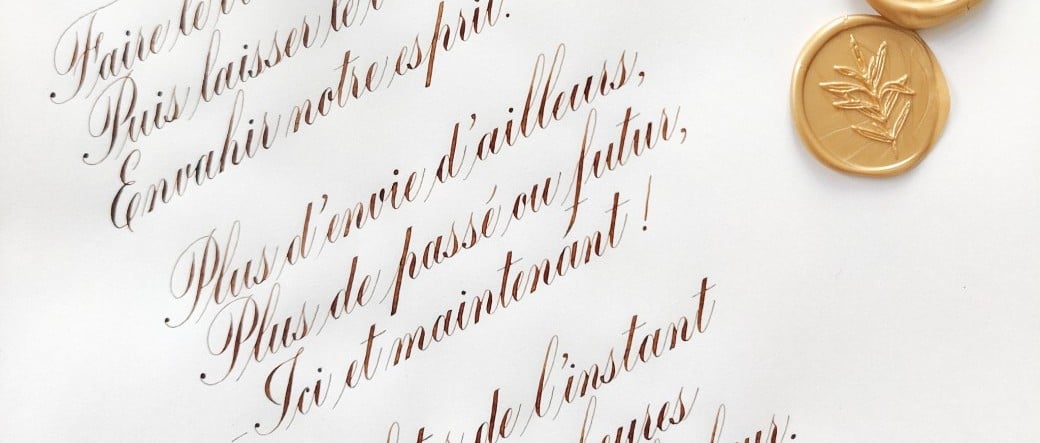 Faire le
Puis laisser le
Envahir notre esprit.
Plus d'envie d'ailleurs,
Plus de passé ou futur,
Ici et maintenant !
de l'instant
heures